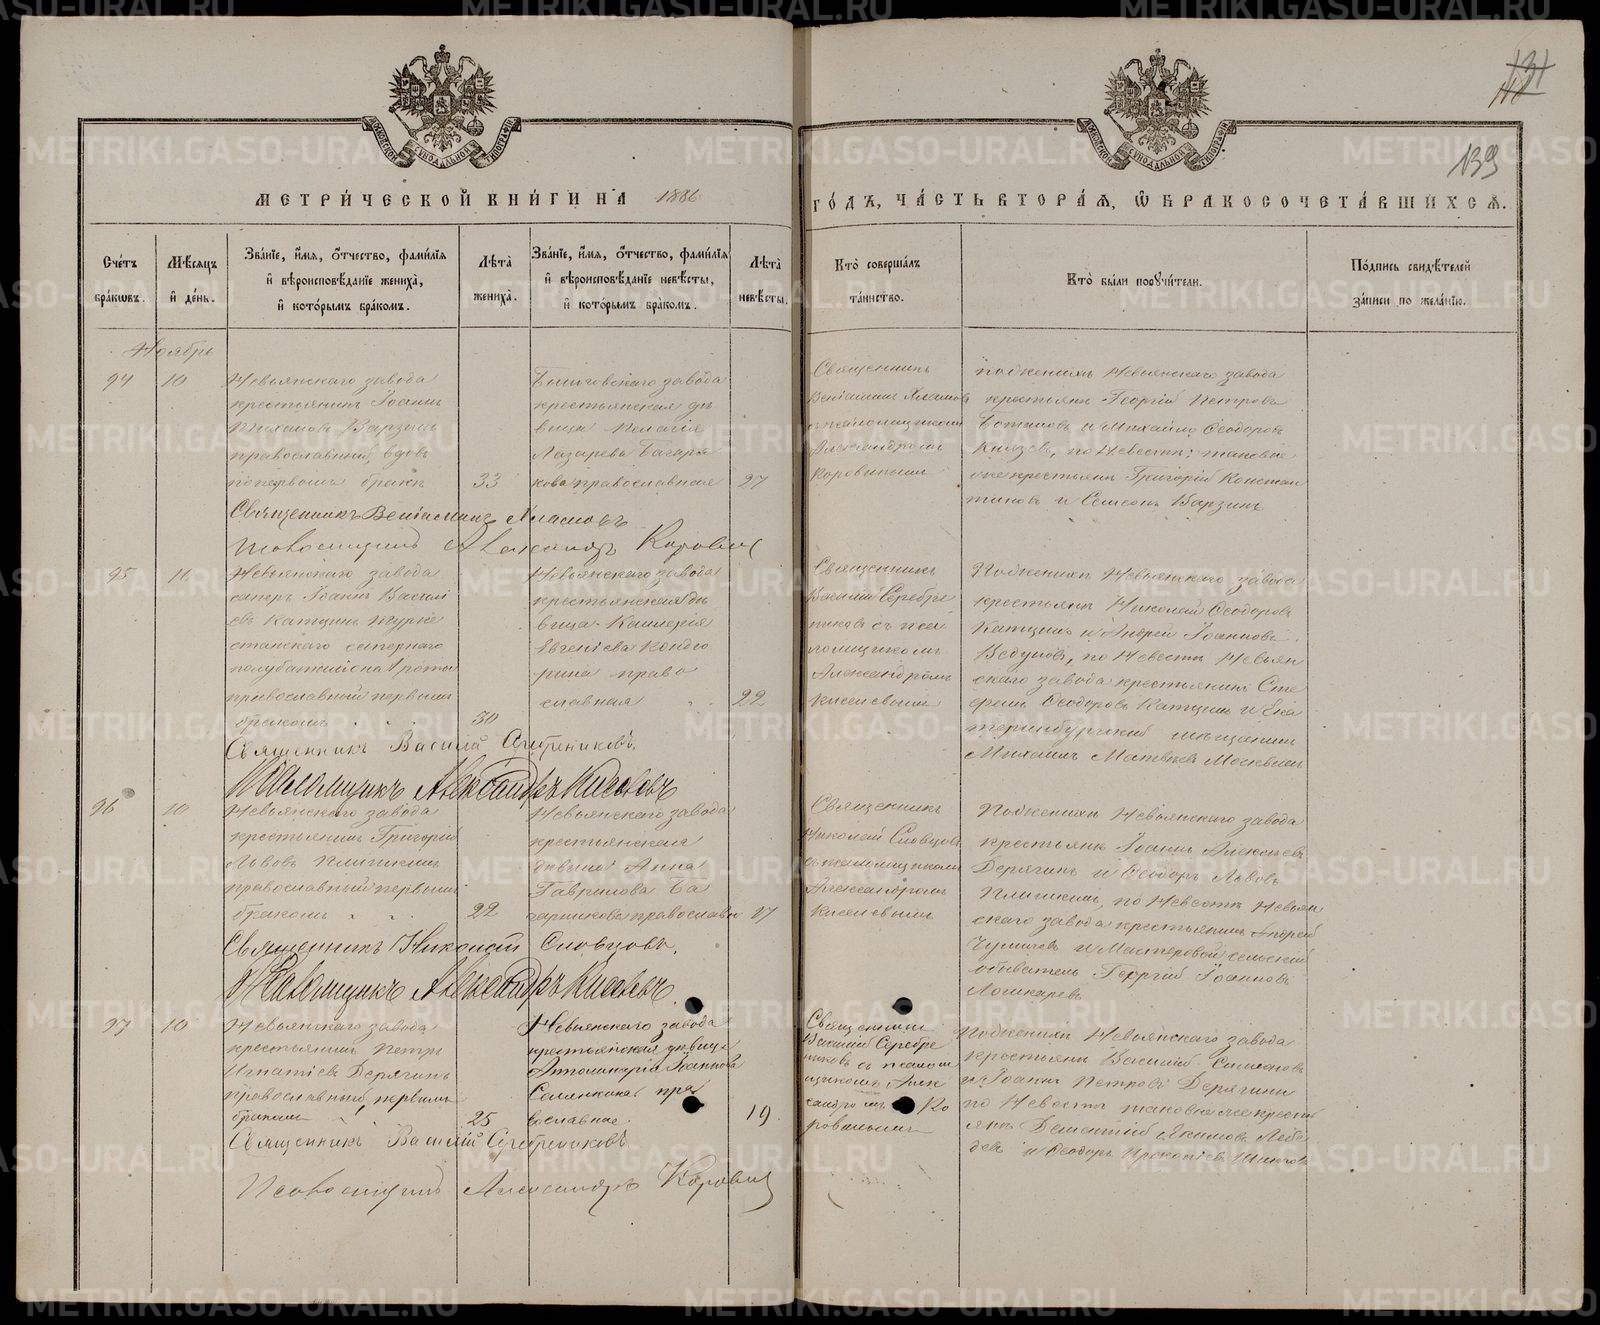 131
139
МОСКОВСКОЙ СѴНОДАЛЬНОЙ ТИПОГРАФІИ
МОСКОВСКОЙ СѴНОДАЛЬНОЙ ТИПОГРАФІИ
МЕТРИ́ЧЕСКОЙ КНИ́ГИ НА 1886 ГО́ДЪ, ЧА́СТЬ ВТОРА́Я, Ѡ БРАКОСОЧЕТА́ВШИХСЯ.
Сче́тъ бра́кѡвъ.
Мѣ́сяцъ и҆ де́нь.
Зва́нїе, и҆́мѧ, ѻ҆́тчество, фами́лїѧ и҆ вѣроисповѣ́данїе жениха̀, и҆ кото́рымъ бра́комъ.
Лѣ́та жениха̀.
Зва́нїе, и҆́мѧ, ѻ҆́тчество, фами́лїѧ и҆ вѣроисповѣ́данїе невѣ́сты, и҆ кото́рымъ бра́комъ.
Лѣ́та невѣ́сты.
Кто̀ соверша́лъ та́инство.
Кто̀ бы́ли порꙋчи́тели.
По́дпись свидѣ́телей за́писи по жела́нїю.
Ноябрь
94
10
Невьянскаго завода
крестьянинъ Іоаннъ
Варзинъ
православный, вдовъ
по первомъ бракѣ
33
завода
крестьянская дѣ
вица Пелагія
Лазарева Багаря
кова православная
27
Священникъ
Веніаминъ Хламовъ
съ псаломщикомъ
Александромъ
Коровинымъ
По женихѣ Невьянскаго завода
крестьяне Георгій Петровъ
и Михаилъ Ѳеодоровъ
Князевъ, по невестѣ: таковые
же крестьяне Григорій Констан
тиновъ и Семенъ Варзины
Священникъ Веніаминъ Хламовъ
Псаломщикъ Александръ Коровинъ
95
Невьянскаго завода
саперъ Іоаннъ Василі
евъ Катцинъ Турке
станскаго сапернаго
полубатиліона 1 роты
православный первымъ
бракомъ
30
Невьянскаго завода
крестьянская дѣ
вица
Евгеніева Кондю
рина право
славная
22
Священникъ
Василій Серебре
никовъ съ псал
омщикомъ
Александромъ
Киселевымъ
По женихѣ Невьянскаго завода
крестьяне Николай Ѳеодоровъ
Катцинъ и Андрей Іоанновъ
Ведуновъ, по невестѣ Невьян
скаго завода крестьянинъ Сте
фанъ Ѳеодоровъ Катцинъ и Ека
теринбургскій мѣщанинъ
Михаилъ Матвеевъ Москвинъ
Священникъ Василій Серебрениковъ
Псаломщикъ Александръ Киселевъ
96
10
Невьянскаго завода
крестьянинъ Григорій
Львовъ Плишкинъ
православный первымъ
бракомъ
22
Невьянскаго завода
крестьянская
дѣвица Анна
Гаврилова Ба
православн
17
Священникъ
Николай Словцовъ
съ псаломщикомъ
Александромъ
Киселевымъ
По женихѣ Невьянскаго завода
крестьяне Іоаннъ Алексѣевъ
Дерягинъ и Ѳеодоръ Львовъ
Плишкинъ, по невестѣ Невьян
скаго завода крестьянинъ Андрей
и Мастеровой сельскій
обыватель Георгій Іоанновъ
Лошкаревъ
Священникъ Николай Словцовъ.
Псаломщикъ Александръ Киселевъ.
97
10
Невьянскаго завода
крестьянинъ Петръ
Игнатіевъ Дерягинъ
православный первымъ
бракомъ
25
Невьянскаго завода
крестьянская дѣвица
Апполинарія Іоаннова
пра
вославная.
19.
Священникъ
Василій Серебре
никовъ съ псалом
щикомъ Алек
сандромъ Ко
ровинымъ
По женихѣ Невьянскаго завода
крестьяне Василій Симоновъ
и Іоаннъ Петровъ Дерягины
по невестѣ таковые же кресть
яне Дементій Якимовъ Лебе
девъ и Ѳеодоръ Прокопіевъ
Священникъ Василій Серебрениковъ
Псаломщикъ Александръ Коровинъ
METRIKI.GASO-URAL.RU